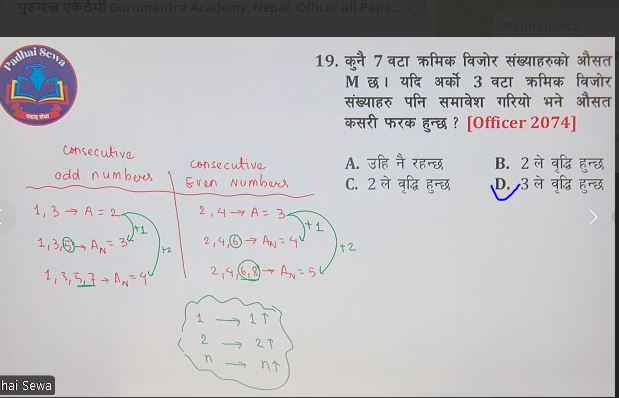 गुरुमन्त्र एकेडेमी Gurumantra Academy, Nepal Officer all Pape...
Padhaisewa
Padhai Sewa
पढाइ सेवा
19. कुनै 7 वटा क्रमिक विजोर संख्याहरुको औसत
M छ। यदि अर्को 3 वटा क्रमिक विजोर
संख्याहरु पनि समावेश गरियो भने औसत
कसरी फरक हुन्छ ? [Officer 2074]
A. उहि नै रहन्छ
B. 2 ले वृद्धि हुन्छ
C. 2 ले वृद्धि हुन्छ
D. 3 ले वृद्धि हुन्छ
consecutive
odd numbers
1, 3 → A = 2
+1
1, 3, 5 → AN = 3
+2
1, 3, 5, 7 → AN = 4
consecutive
Even Numbers
2, 4 → A = 3
+1
2, 4, 6 → AN = 4
+2
2, 4, 6, 8 → AN = 5
1 → 1↑
2 → 2↑
n → n↑
hai Sewa